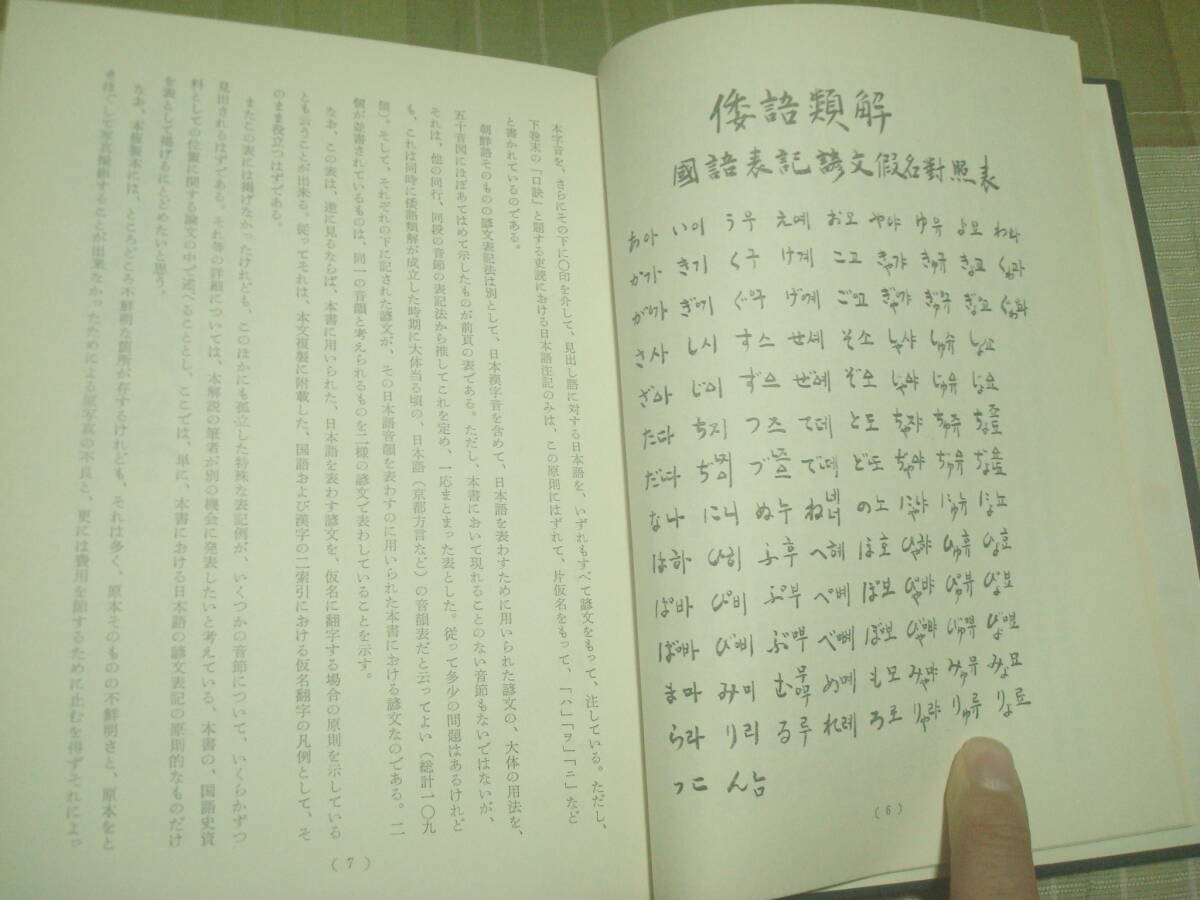 倭語類解
國語表記諺文假名對照表
あ아 い이 う우 え예 お오 や야 ゆ유 よ요 わ와
か가 き기 く구 け계 こ고 きゃ갸 きゅ규 きょ교 くゎ과
が ぎ ぐ げ ご ぎゃ ぎゅ ぎょ ぐゎ
さ사 し시 す스 せ셰 そ소 しゃ샤 しゅ슈 しょ쇼
ざ じ ず ぜ ぞ じゃ じゅ じょ
た다 ち지 つ즈 て뎨 と도 ちゃ쟈 ちゅ쥬 ちょ
だ ぢ づ で ど ぢゃ ぢゅ ぢょ
な나 に니 ぬ누 ね の노 にゃ냐 にゅ뉴 にょ뇨
は하 ひ히 ふ후 へ혜 ほ호 ひゃ햐 ひゅ휴 ひょ효
ぱ바 ぴ비 ぷ부 ぺ볘 ぽ보 ぴゃ뱌 ぴゅ뷰 ぴょ뵤
ば び ぶ べ ぼ びゃ びゅ びょ
ま마 み미 む め몌 も모 みゃ먀 みゅ뮤 みょ묘
ら라 り리 る루 れ례 ろ로 りゃ랴 りゅ류 りょ료
っ ん
(6)
本字音を、さらにその下に〇印を介して、見出し語に対する日本語を、いずれもすべて諺文をもって、注している。ただし、
下巻末の「口訣」と題する吏読における日本語注記のみは、この原則にはずれて、片仮名をもって、「ハ」「ヲ」「ニ」など
と書かれているのである。
朝鮮語そのものの諺文表記法は別として、日本漢字音を含めて、日本語を表わすために用いられた諺文の、大体の用法を、
五十音図にほぼあてはめて示したものが前頁の表である。ただし、本書において現れることのない音節もないではないが、
それは、他の同行、同段の音節の表記法から推してこれを定め、一応まとまった表とした。従って多少の問題はあるけれど
も、これは同時に倭語類解が成立した時期に大体当る頃の、日本語（京都方言など）の音韻表だと云ってよい（総計一〇九
個）。そして、それぞれの下に記された諺文が、その日本語音韻を表わすのに用いられた本書における諺文なのである。二
個が並書されているものは、同一の音韻と考えられるものを二様の諺文で表わしていることを示す。
なお、この表は、逆に見るならば、本書に用いられた、日本語を表わす諺文を、仮名に翻字する場合の原則を示している
とも云うことが出来る。従ってそれは、本文複製に附載した、国語および漢字の二索引における仮名翻字の凡例として、そ
のまま役立つはずである。
またこの表には掲げなかったけれども、このほかにも孤立した特殊な表記例が、いくつかの音節について、いくらかずつ
見出されるはずである。それ等の詳細については、本解説の筆者が別の機会に発表したいと考えている、本書の、国語史資
料としての位置に関する論文の中で述べることとし、ここでは、単に、本書における日本語の諺文表記の原則的なものだけ
を表として掲げるにとどめたいと思う。
なお、本複製本には、ところどころ不鮮明な箇所が存するけれども、それは多く、原本そのものの不鮮明さと、原本をと
きほぐして写真撮影することが出来なかったためによる原写真の不良と、更には費用を節するために止むを得ずそれによっ
(7)